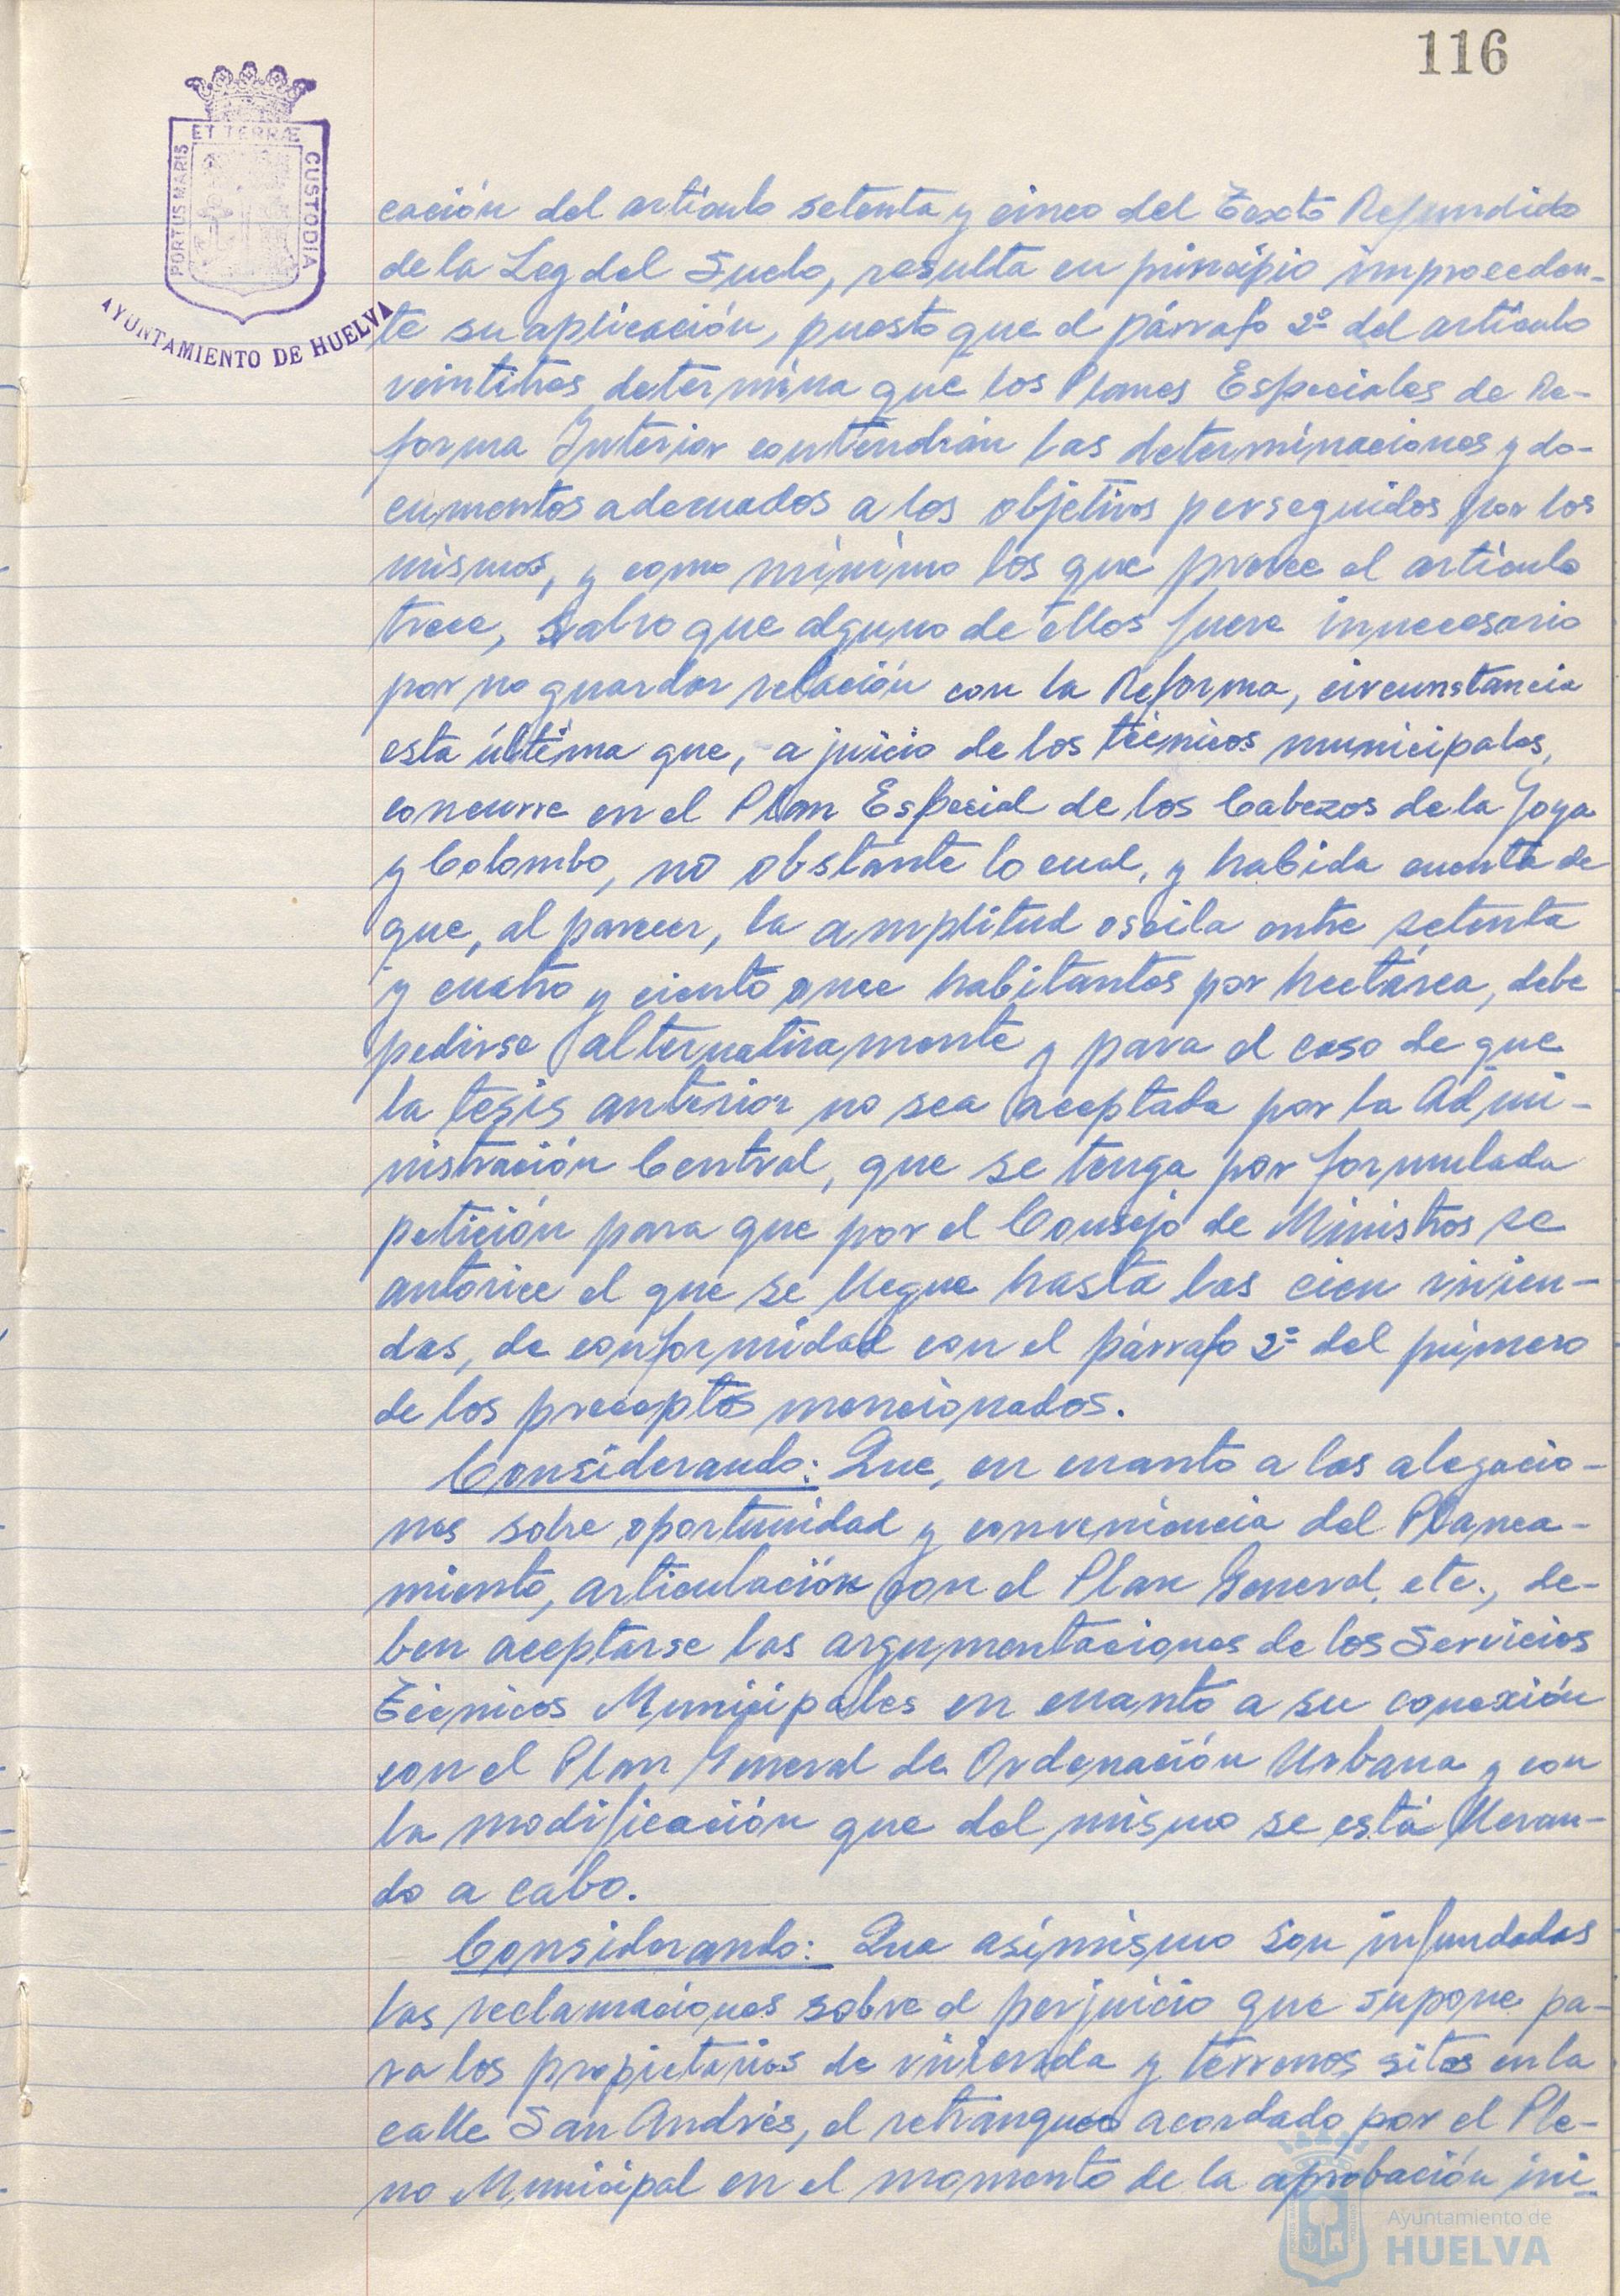 116
ET TERRÆ
PORTUS MARIS
CUSTODIA
AYUNTAMIENTO DE HUELVA
cación del artículo setenta y cinco del Texto Refundido
de la Ley del Suelo, resulta en principio improceden-
te su aplicación, puesto que el párrafo 2º del artículo
veintitres determina que los Planes Especiales de Re-
forma Interior contendrán las determinaciones y do-
cumentos adecuados a los objetivos perseguidos por los
mismos, y como mínimo los que prevee el artículo
trece, salvo que alguno de ellos fuere innecesario
por no guardar relación con la Reforma, circunstancia
esta última que, a juicio de los técnicos municipales,
concurre en el Plan Especial de los Cabezos de la Joya
y Colombo, no obstante lo cual, y habida cuenta de
que, al parecer, la amplitud oscila entre setenta
y cuatro y ciento once habitantes por hectárea, debe
pedirse alternativamente y para el caso de que
la tesis anterior no sea aceptada por la Admi-
nistración Central, que se tenga por formulada
petición para que por el Consejo de Ministros se
autorice el que se llegue hasta las cien vivien-
das, de conformidad con el párrafo 2º del primero
de los preceptos mencionados.
Considerando: Que, en cuanto a las alegacio-
nes sobre oportunidad y conveniencia del Planea-
miento, articulación con el Plan General, etc., de-
ben aceptarse las argumentaciones de los Servicios
Técnicos Municipales en cuanto a su conexión
con el Plan General de Ordenación Urbana y con
la modificación que del mismo se está llevan-
do a cabo.
Considerando: Que asímismo son infundadas
las reclamaciones sobre el perjuicio que supone pa-
ra los propietarios de vivienda y terrenos sitos en la
calle San Andrés, el retranqueo acordado por el Ple-
no Municipal en el momento de la aprobación ini-
Ayuntamiento de
HUELVA